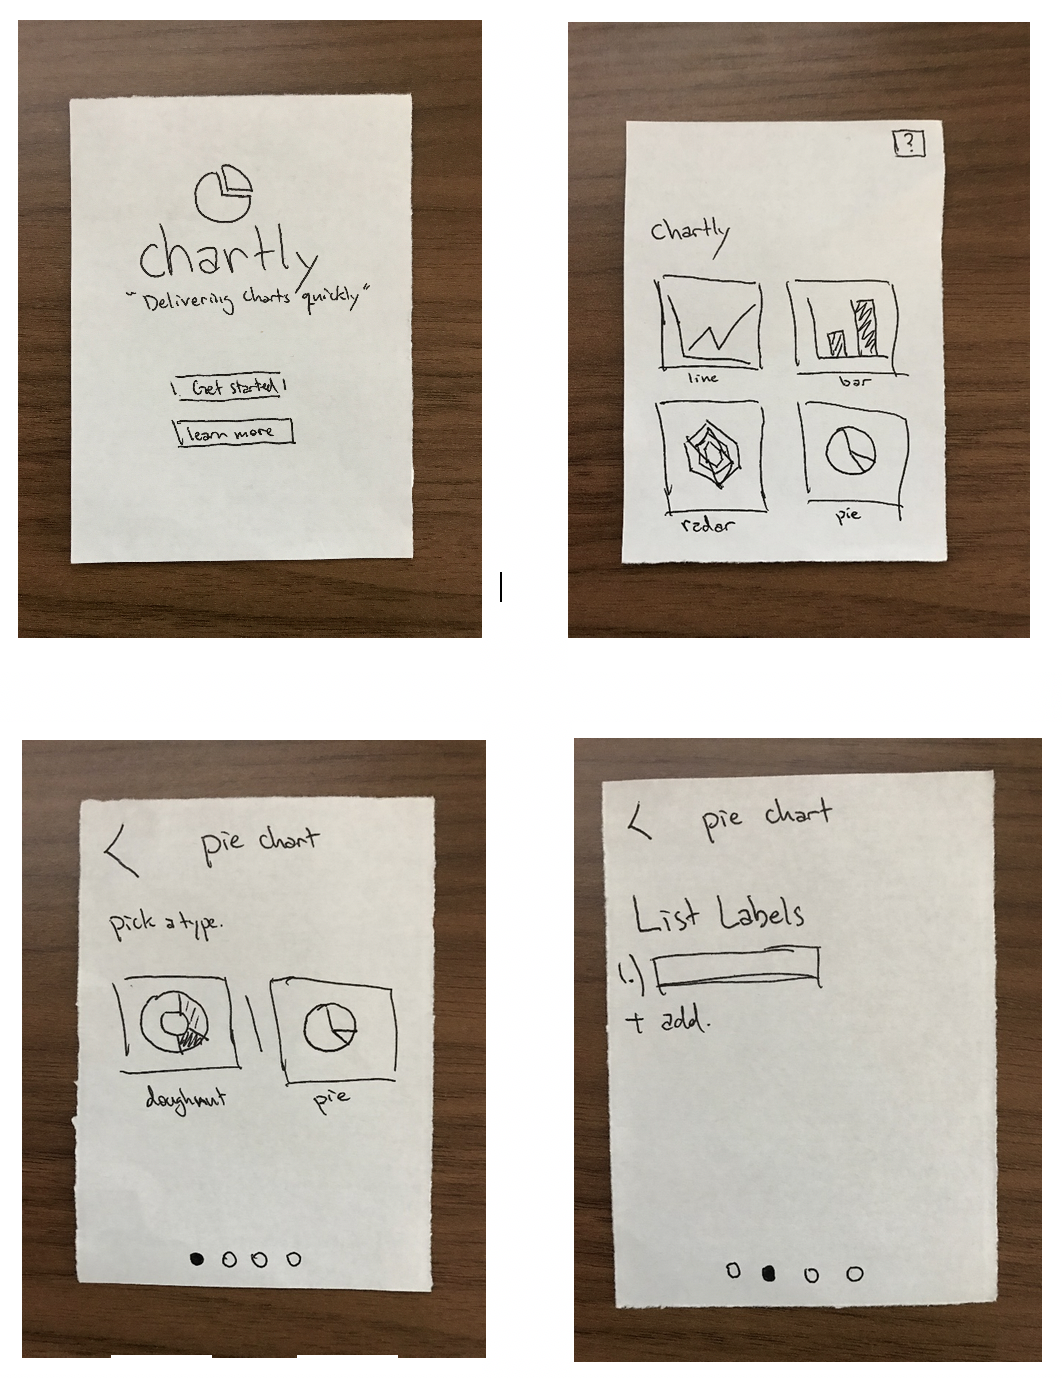 chartly
"Delivering charts quickly"
Get started
learn more
?
Chartly
line
bar
radar
pie
< pie chart
pick a type.
doughnut
pie
< pie chart
List Labels
1.)
+ add.